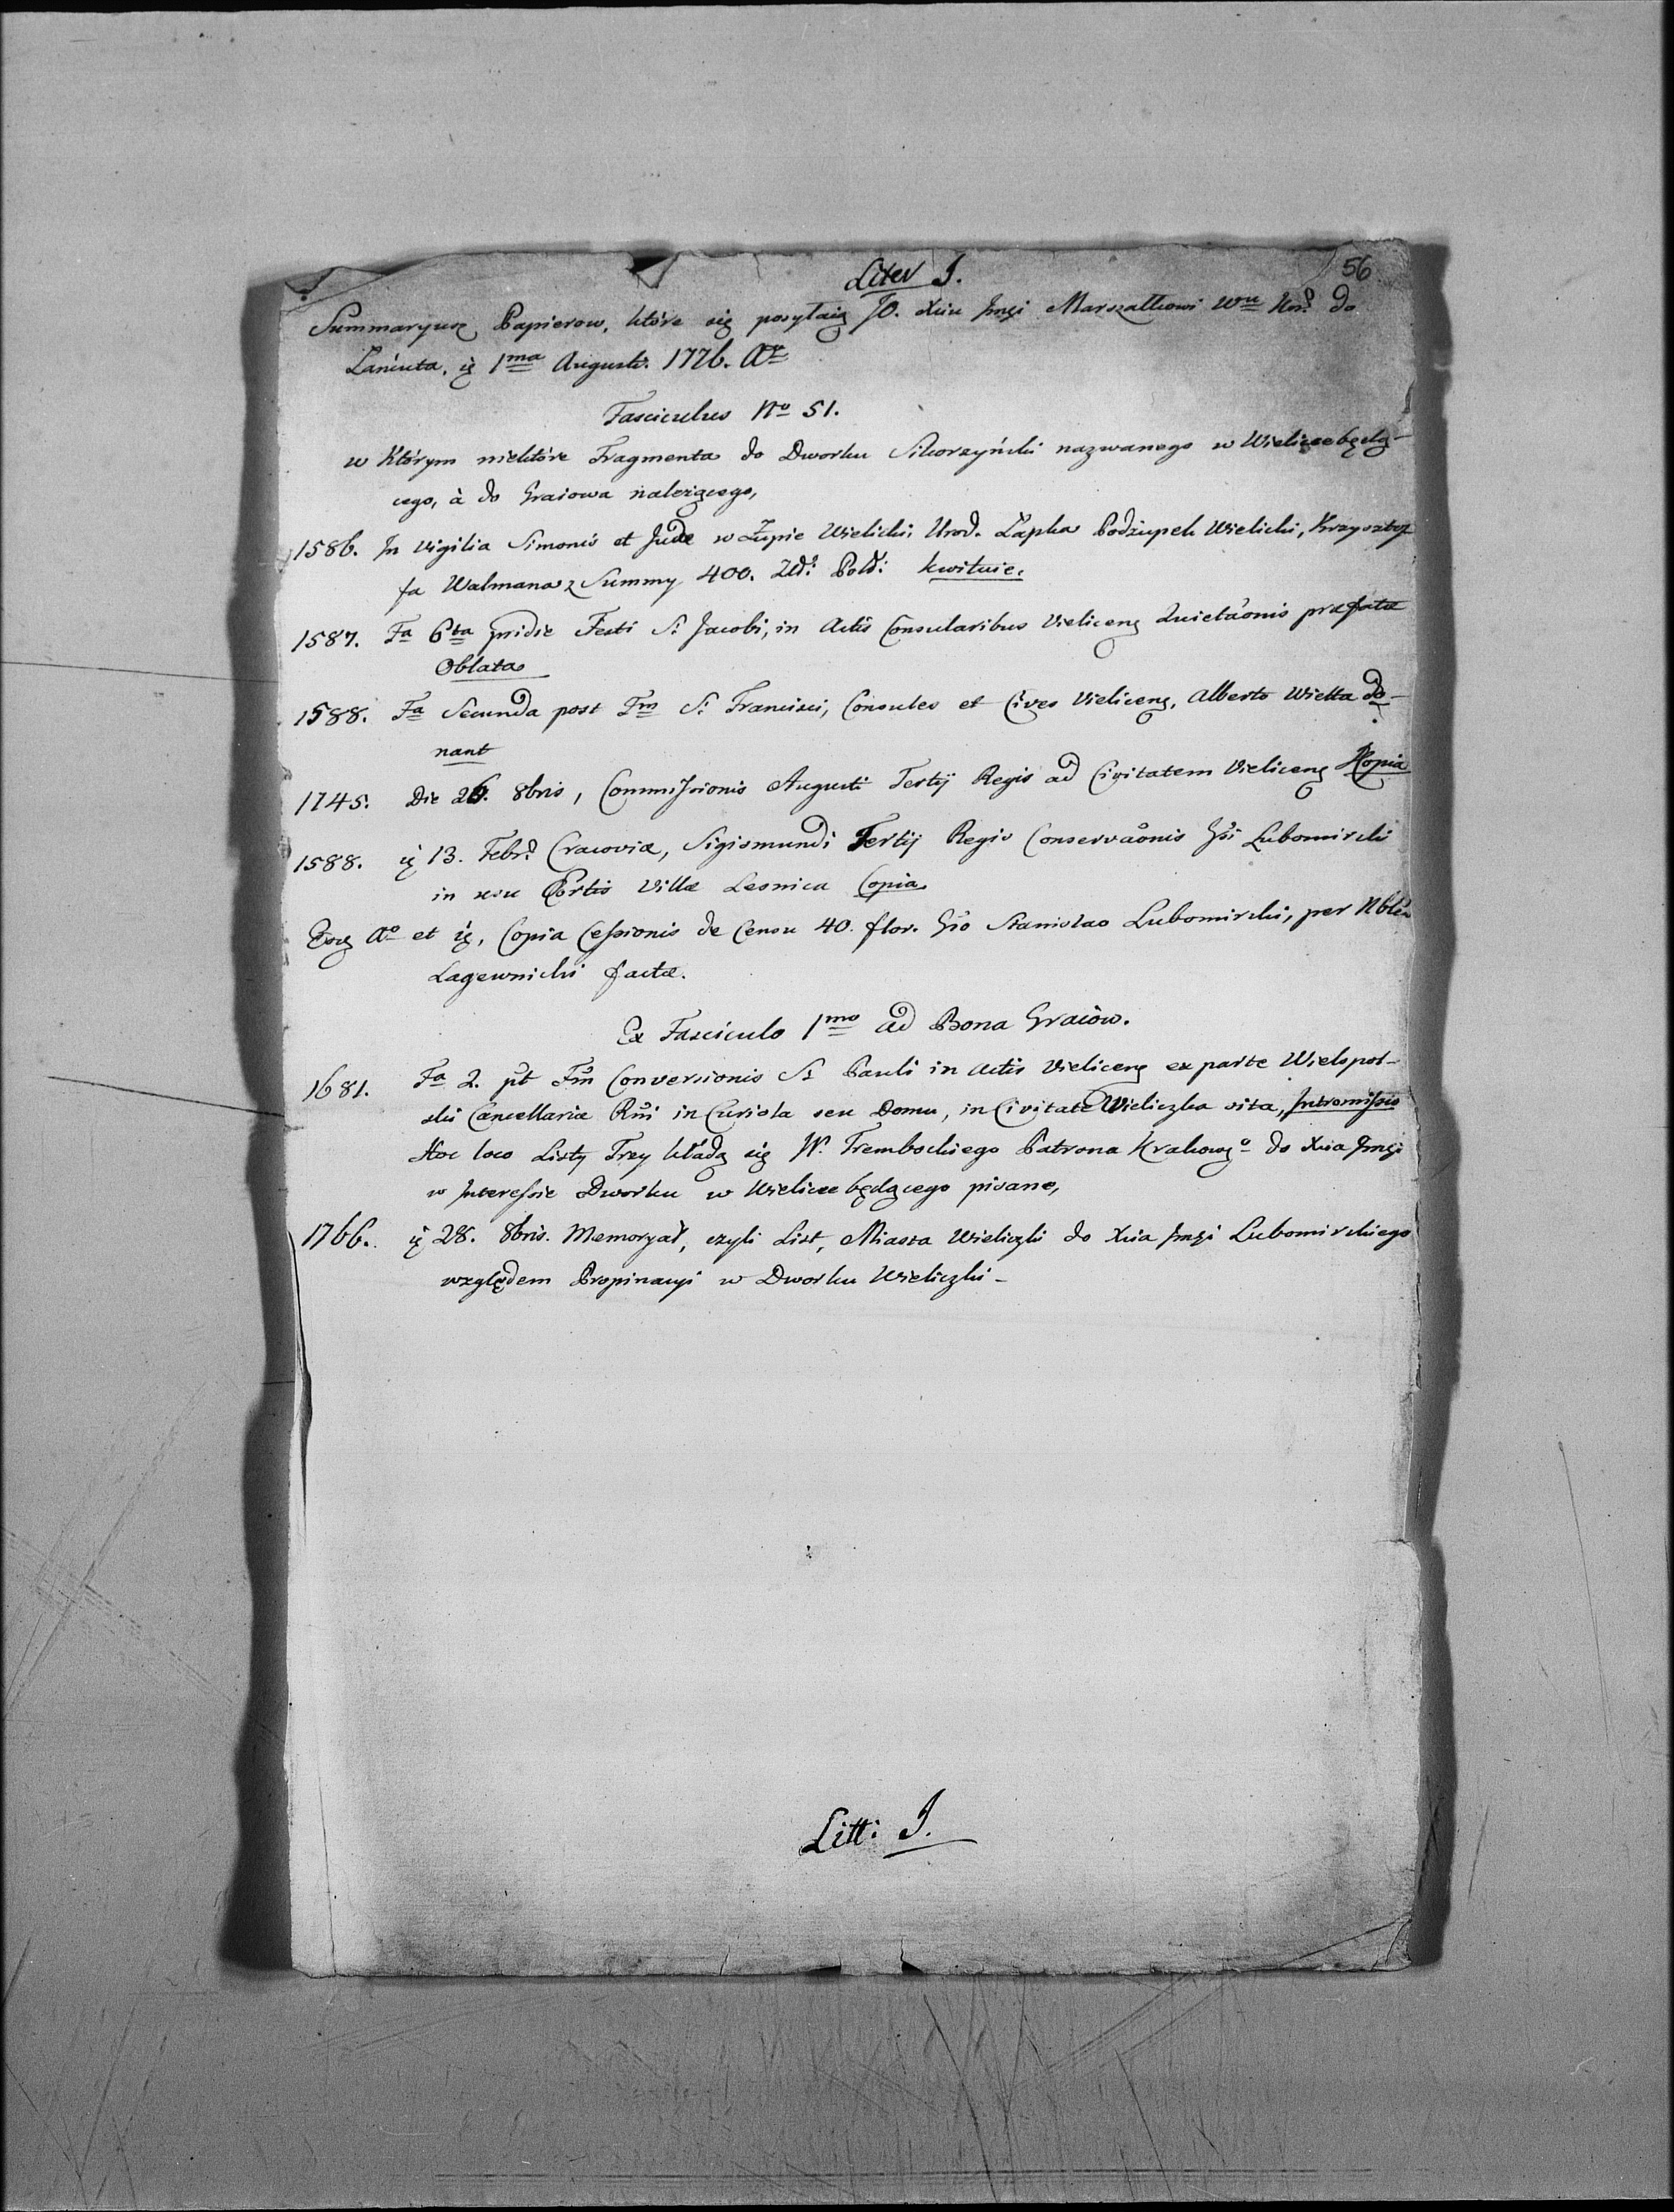 Liter J.
56
Summaryusz Papierow, które się posyłaią JO. Xciu Jmci Marszałkowi Wmu Kor: do
Łańcuta, d. 1ma Augusti. 1776. Ao
Fasciculus No 51.
w Którym niektóre Fragmenta do Dworku Sikorzyński nazwanego w Wieliczce będą-
cego, à do Graiowa należącego,
1586. Jn Vigilia Simonis et Judæ w Żupie Wielicki: Urod. Łapka Podżupek Wielicki, Krzyszto-
fa Walmana z Summy 400. Zł: Pol: kwituie.
1587. Fa 6ta pridie Festi S: Jacobi, in Actis Consularibus Vieliceng Quietaonis præfatæ
Oblata
1588. Fa Secunda post Fm S: Francisci, Consules et Cives Vieliceng, Alberto Wietta do-
nant
1745. Die 26. 8bris, Commissionis Augusti Tertij Regis ad Civitatem Vieliceng Kopia
1588. d. 13. Febr: Cracoviæ, Sigismundi Tertij Regis Conservaonis Gsi Lubomirski
in usu Sortis Villæ Lesnica Copia
Eog Ao et d., Copia Cessionis de Censu 40. flor. Gso Stanislao Lubomirski, per Nblem
Lagewnicki factæ.
Ex Fasciculo 1mo ad Bona Graiów.
1681. Fa 2. pt Fm Conversionis S: Pauli in Actis Vieliceng ex parte Wielopol-
ski Cancellariæ Rni in Curiola seu Domu, in Civitate Wieliczka sita, Jntromissio
Hoc loco Listy Trzy kładą się W. Trembeckiego Patrona Krakowgo do Xcia Jmci
w Jnteressie Dworku w Wieliczce będącego pisane,
1766. d. 28. 8bris. Memoryał, czyli List, Miasta Wieliczki do Xcia Jmci Lubomirskiego
względem Propinacyi w Dworku Wieliczki -
Litt: J.